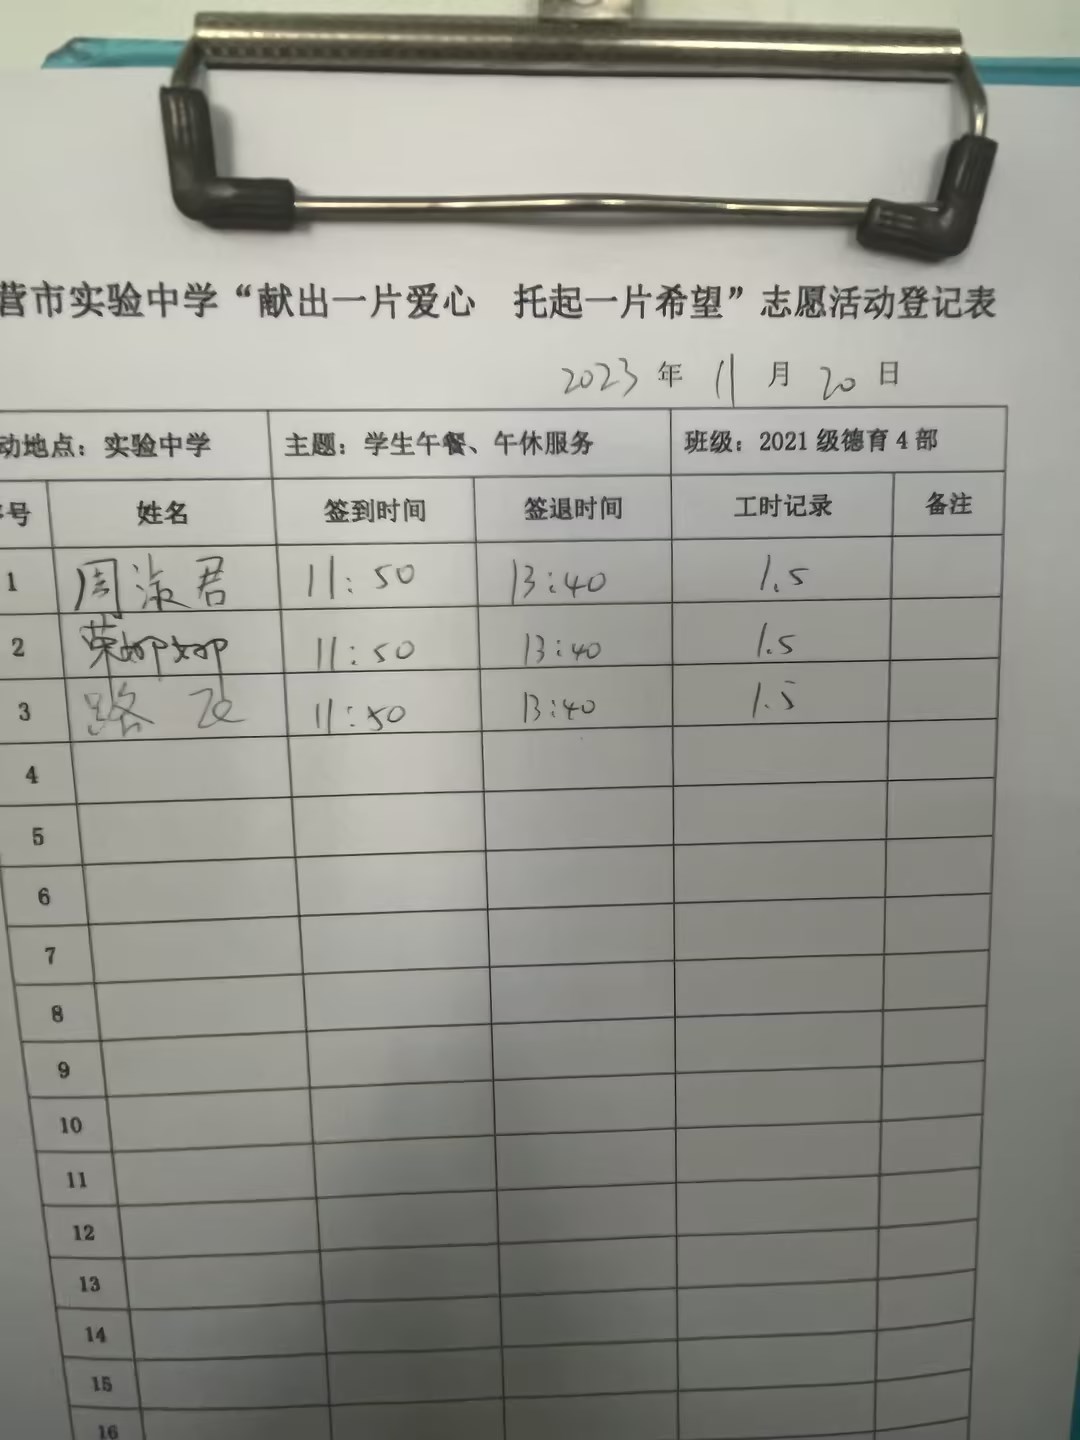 营市实验中学“献出一片爱心 托起一片希望”志愿活动登记表
2023 年 11 月 20 日
动地点：实验中学 主题：学生午餐、午休服务 班级：2021 级德育 4 部
号 姓名 签到时间 签退时间 工时记录 备注
1 周淑君 11:50 13:40 1.5
2 荣娜娜 11:50 13:40 1.5
3 路飞 11:50 13:40 1.5
4
5
6
7
8
9
10
11
12
13
14
15
16